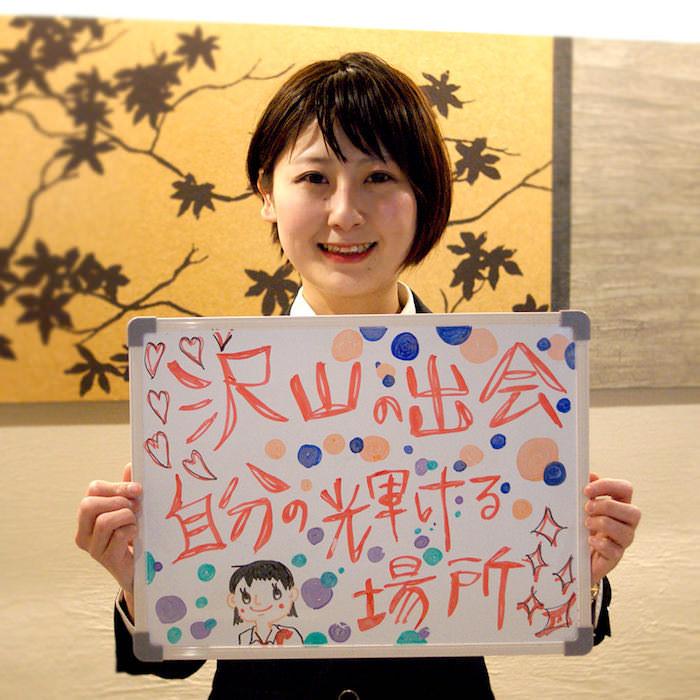 沢山の出会
自分の輝ける
場所